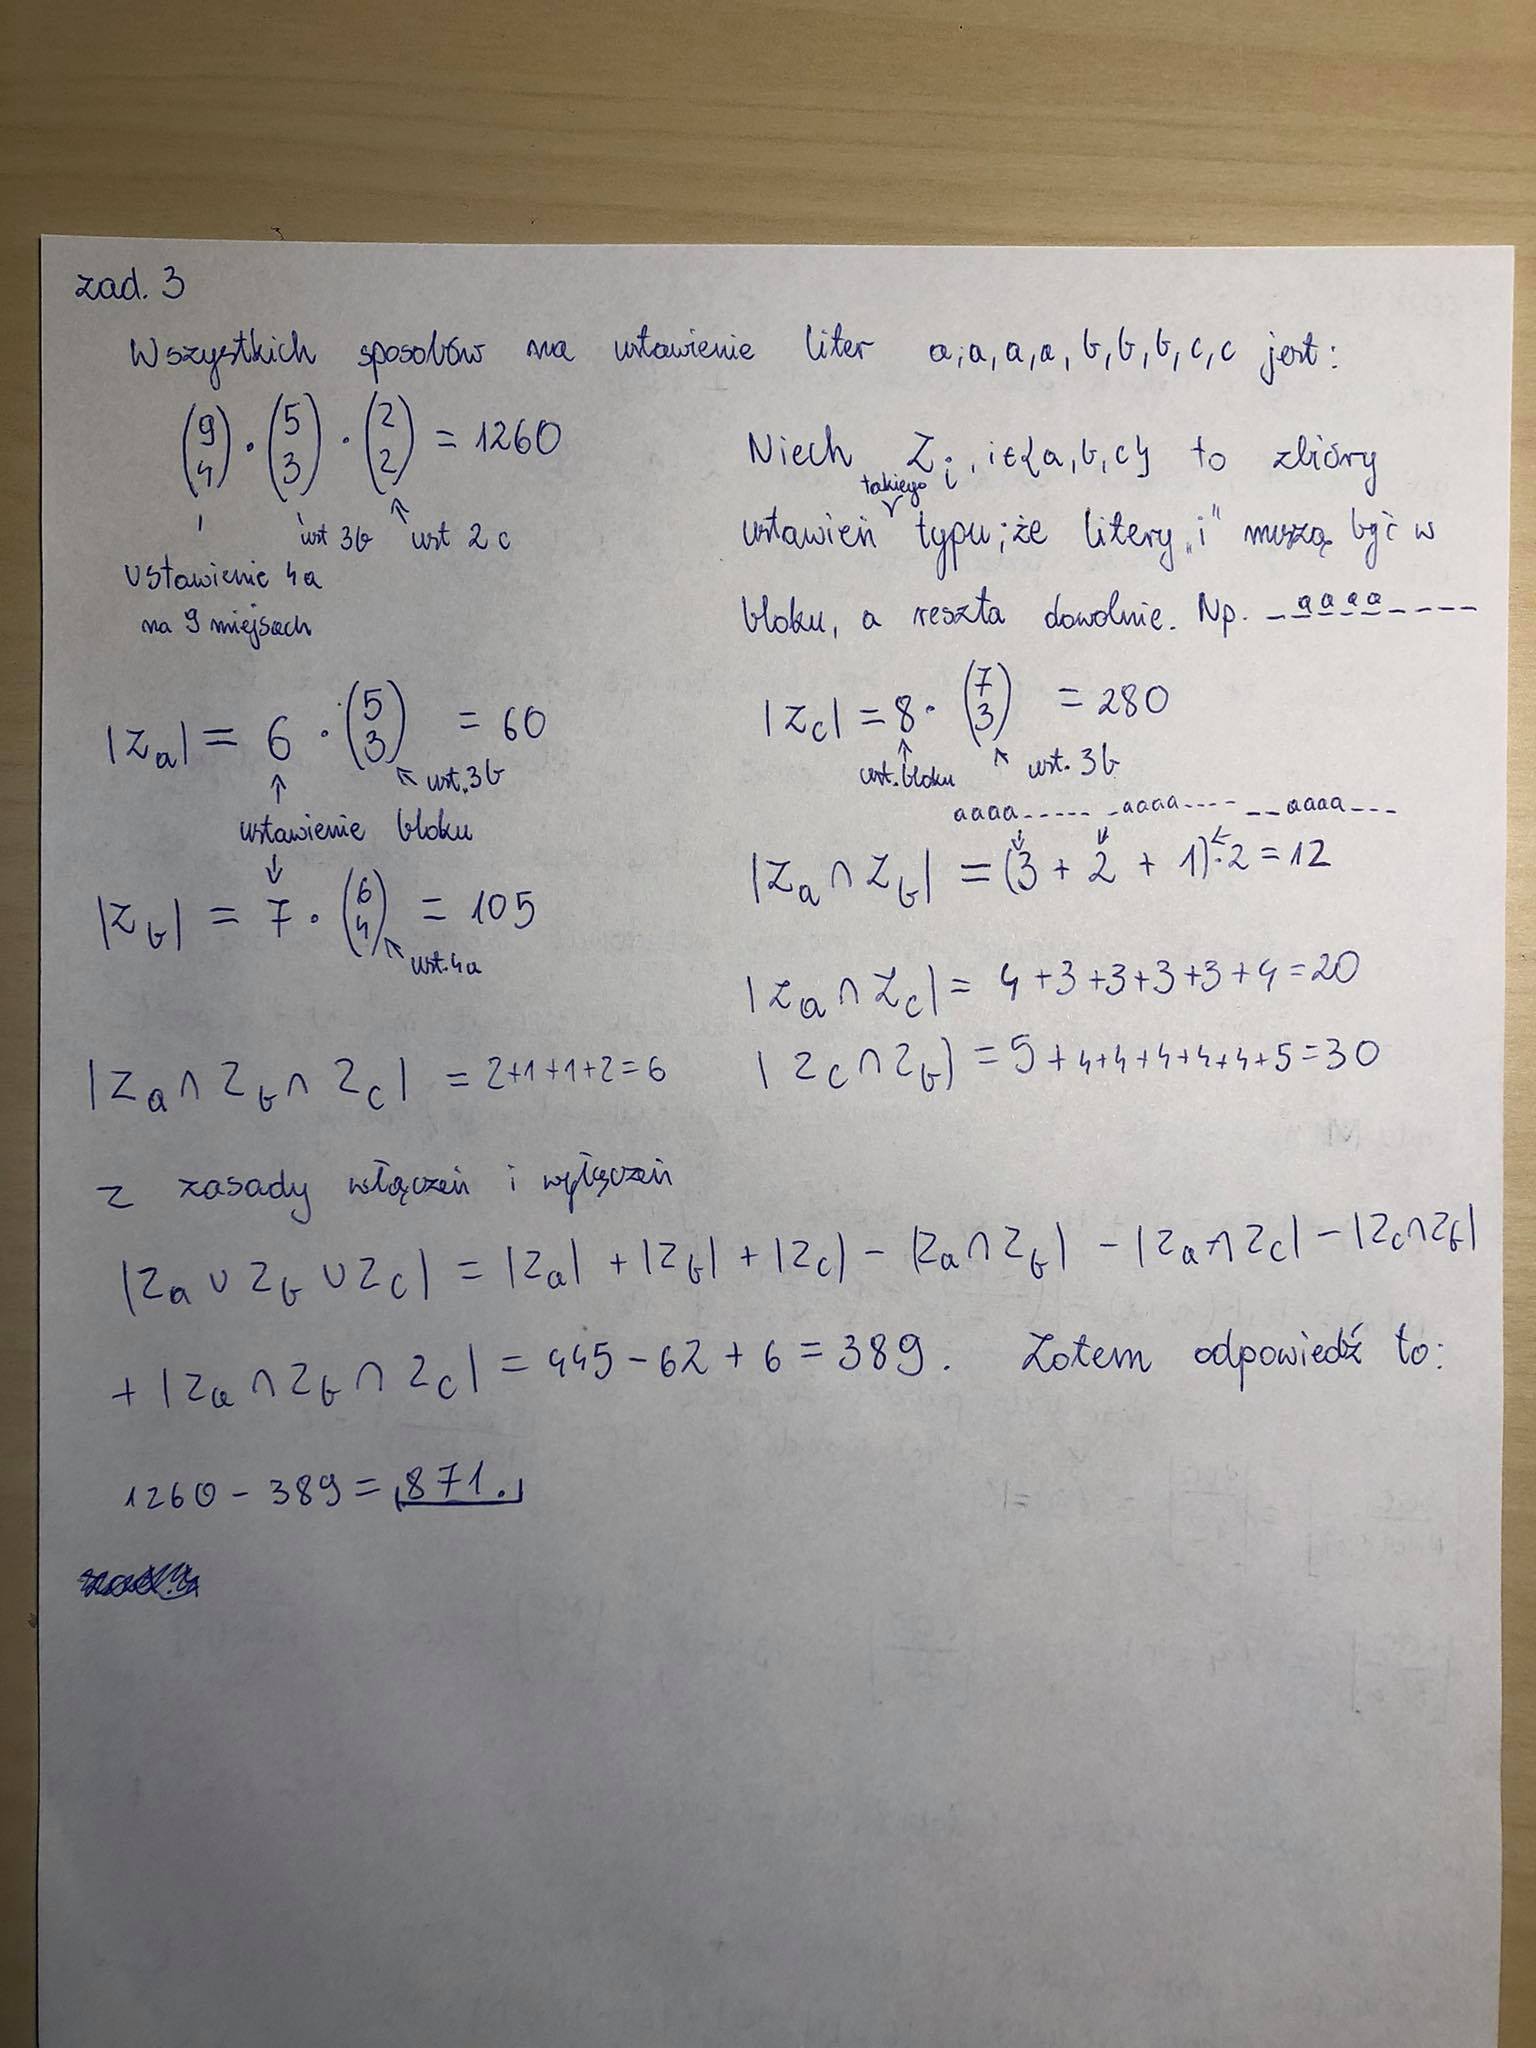 zad. 3
Wszystkich sposobów na ustawienie liter a,a,a,a,b,b,b,c,c jest:
(9 4) · (5 3) · (2 2) = 1260
ust 3b ust 2c
ustawienie 4a
na 9 miejscach
Niech Z_i, i∈{a,b,c} to zbiory
takiego
ustawień typu, że litery „i" muszą być w
bloku, a reszta dowolnie. Np. _ a a a a _ _ _ _
|Z_a| = 6 · (5 3) = 60
ust. 3b
ustawienie bloku
|Z_b| = 7 · (6 4) = 105
ust. 4a
|Z_c| = 8 · (7 3) = 280
ust. bloku ust. 3b
aaaa_____ _aaaa____ __aaaa___
|Z_a ∩ Z_b| = (3 + 2 + 1)·2 = 12
|Z_a ∩ Z_c| = 4+3+3+3+3+4=20
|Z_a ∩ Z_b ∩ Z_c| = 2+1+1+2=6
|Z_c ∩ Z_b| = 5+4+4+4+4+4+5=30
z zasady włączeń i wyłączeń
|Z_a ∪ Z_b ∪ Z_c| = |Z_a| + |Z_b| + |Z_c| - |Z_a ∩ Z_b| - |Z_a ∩ Z_c| - |Z_c ∩ Z_b|
+ |Z_a ∩ Z_b ∩ Z_c| = 445 - 62 + 6 = 389. Zatem odpowiedź to:
1260 - 389 = 871.